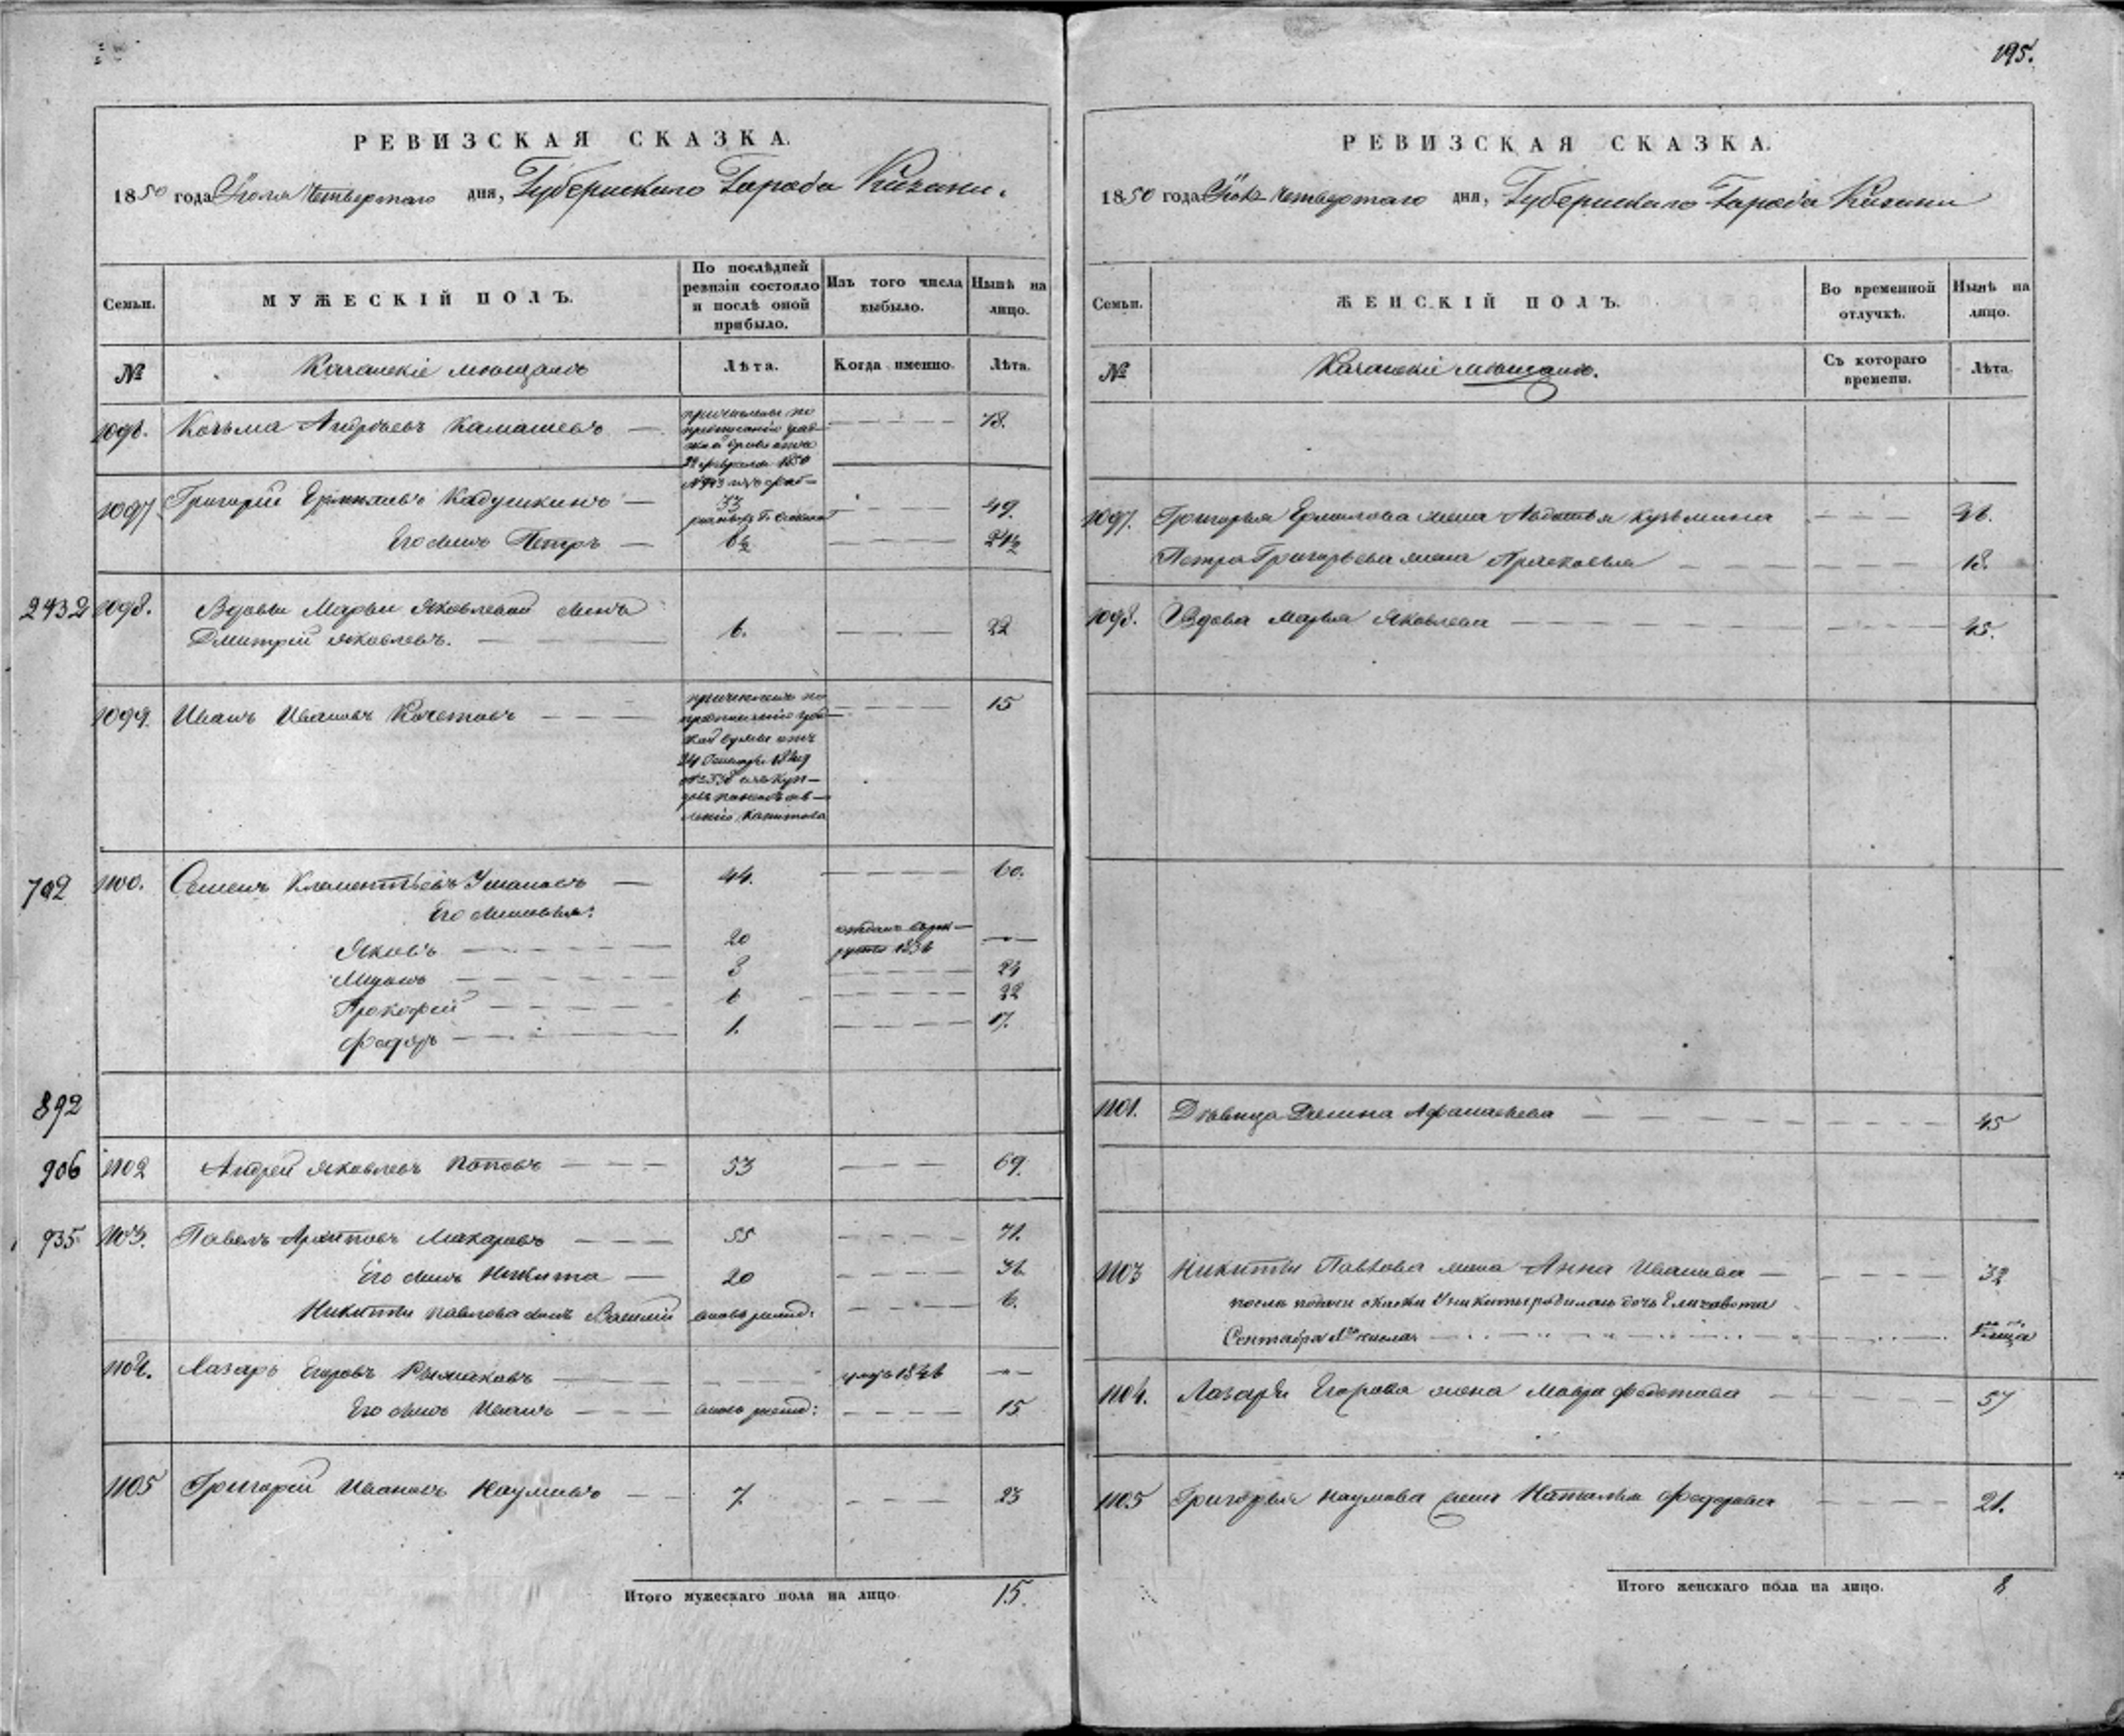 195.
РЕВИЗСКАЯ СКАЗКА.
1850 года Іюля четвертаго дня, Губернскаго Города Казани.
Семьи.
МУЖЕСКІЙ ПОЛЪ.
По послѣдней ревизіи состояло и послѣ оной прибыло.
Изъ того числа выбыло.
Нынѣ на лицо.
№
Казанскіе мѣщане
Лѣта.
Когда именно.
Лѣта.
1096. Козьма Андреевъ — 78.
причисленъ по
предписанію
февраля 1850
1097 Григорій Кадушкинъ — 33 49.
Его сынъ Петръ — 6½ 21½
2432 1098. Вдовы Марьи Яковлевой сынъ
Дмитрій Яковлевъ. 6. 22
1099. Иванъ Ивановъ Кочетовъ 15
причисленъ по
предписанію
думы отъ
24 1849
капитала
702 1100. Семенъ Клементьевъ Ушаковъ — 44. 60.
Его сыновья:
Яковъ 20 отданъ въ рек-
руты 1836
3
Прокофій 6 22
Федоръ 1. 17.
892
906 1102 Андрей Яковлевъ Поповъ 53 69.
935 1103. Павелъ Архиповъ Макаровъ 55 71.
Его сынъ Никита — 20 36
Никиты Павлова сынъ Василій вновь рожд: 6.
1104. Лазарь Егоровъ умер 1846
Его сынъ Иванъ вновь рожд: 15
1105 Григорій Ивановъ Наумовъ 7. 23
Итого мужескаго пола на лицо 15.
РЕВИЗСКАЯ СКАЗКА.
1850 года четвертаго дня, Губернскаго Города Казани
Семьи.
ЖЕНСКІЙ ПОЛЪ.
Во временной отлучкѣ.
Нынѣ на лицо.
№
Казанскіе мѣщане.
Съ котораго времени.
Лѣта.
1097. Григорья Ермолова жена Авдотья Кузьмина
Петра Григорьева жена Прасковья 18.
1098. Вдова Марья Яковлева 45.
1101. Дѣвица Афанасьева 45
1103 Никиты Павлова жена Анна Иванова — 32
послѣ подачи сказки у Никиты родилась дочь Елизавета
Сентября числа
1104. Лазаря Егорова жена Мавра Федотова 57
1105 Григорья Наумова жена Наталья Федорова 21.
Итого женскаго пола на лицо. 8